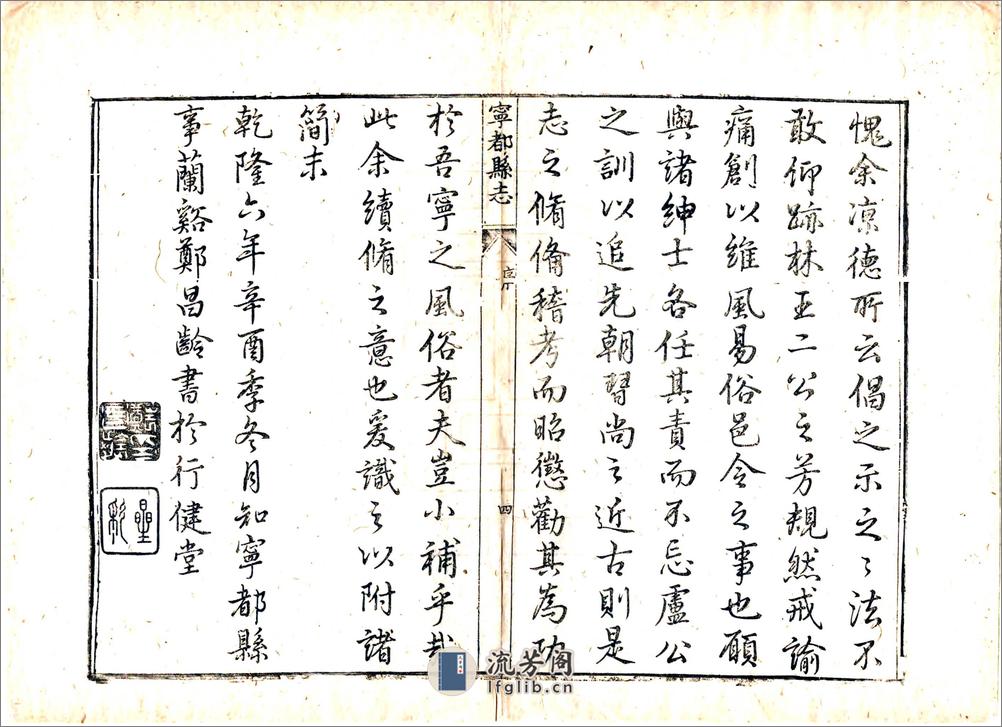 愧余凉德所云倡之示之之法不
敢仰跡林王二公之芳規然戒諭
痛創以維風易俗邑令之事也願
與諸紳士各任其責而不忘盧公
之訓以追先朝習尚之近古則是
志之脩備稽考而昭懲勸其為功
寧都縣志
序
四
於吾寧之風俗者夫豈小補乎哉
此余續脩之意也爰識之以附諸
簡末
乾隆六年辛酉季冬月知寧都縣
事蘭谿鄭昌齡書於行健堂
流芳閣
lfglib.cn